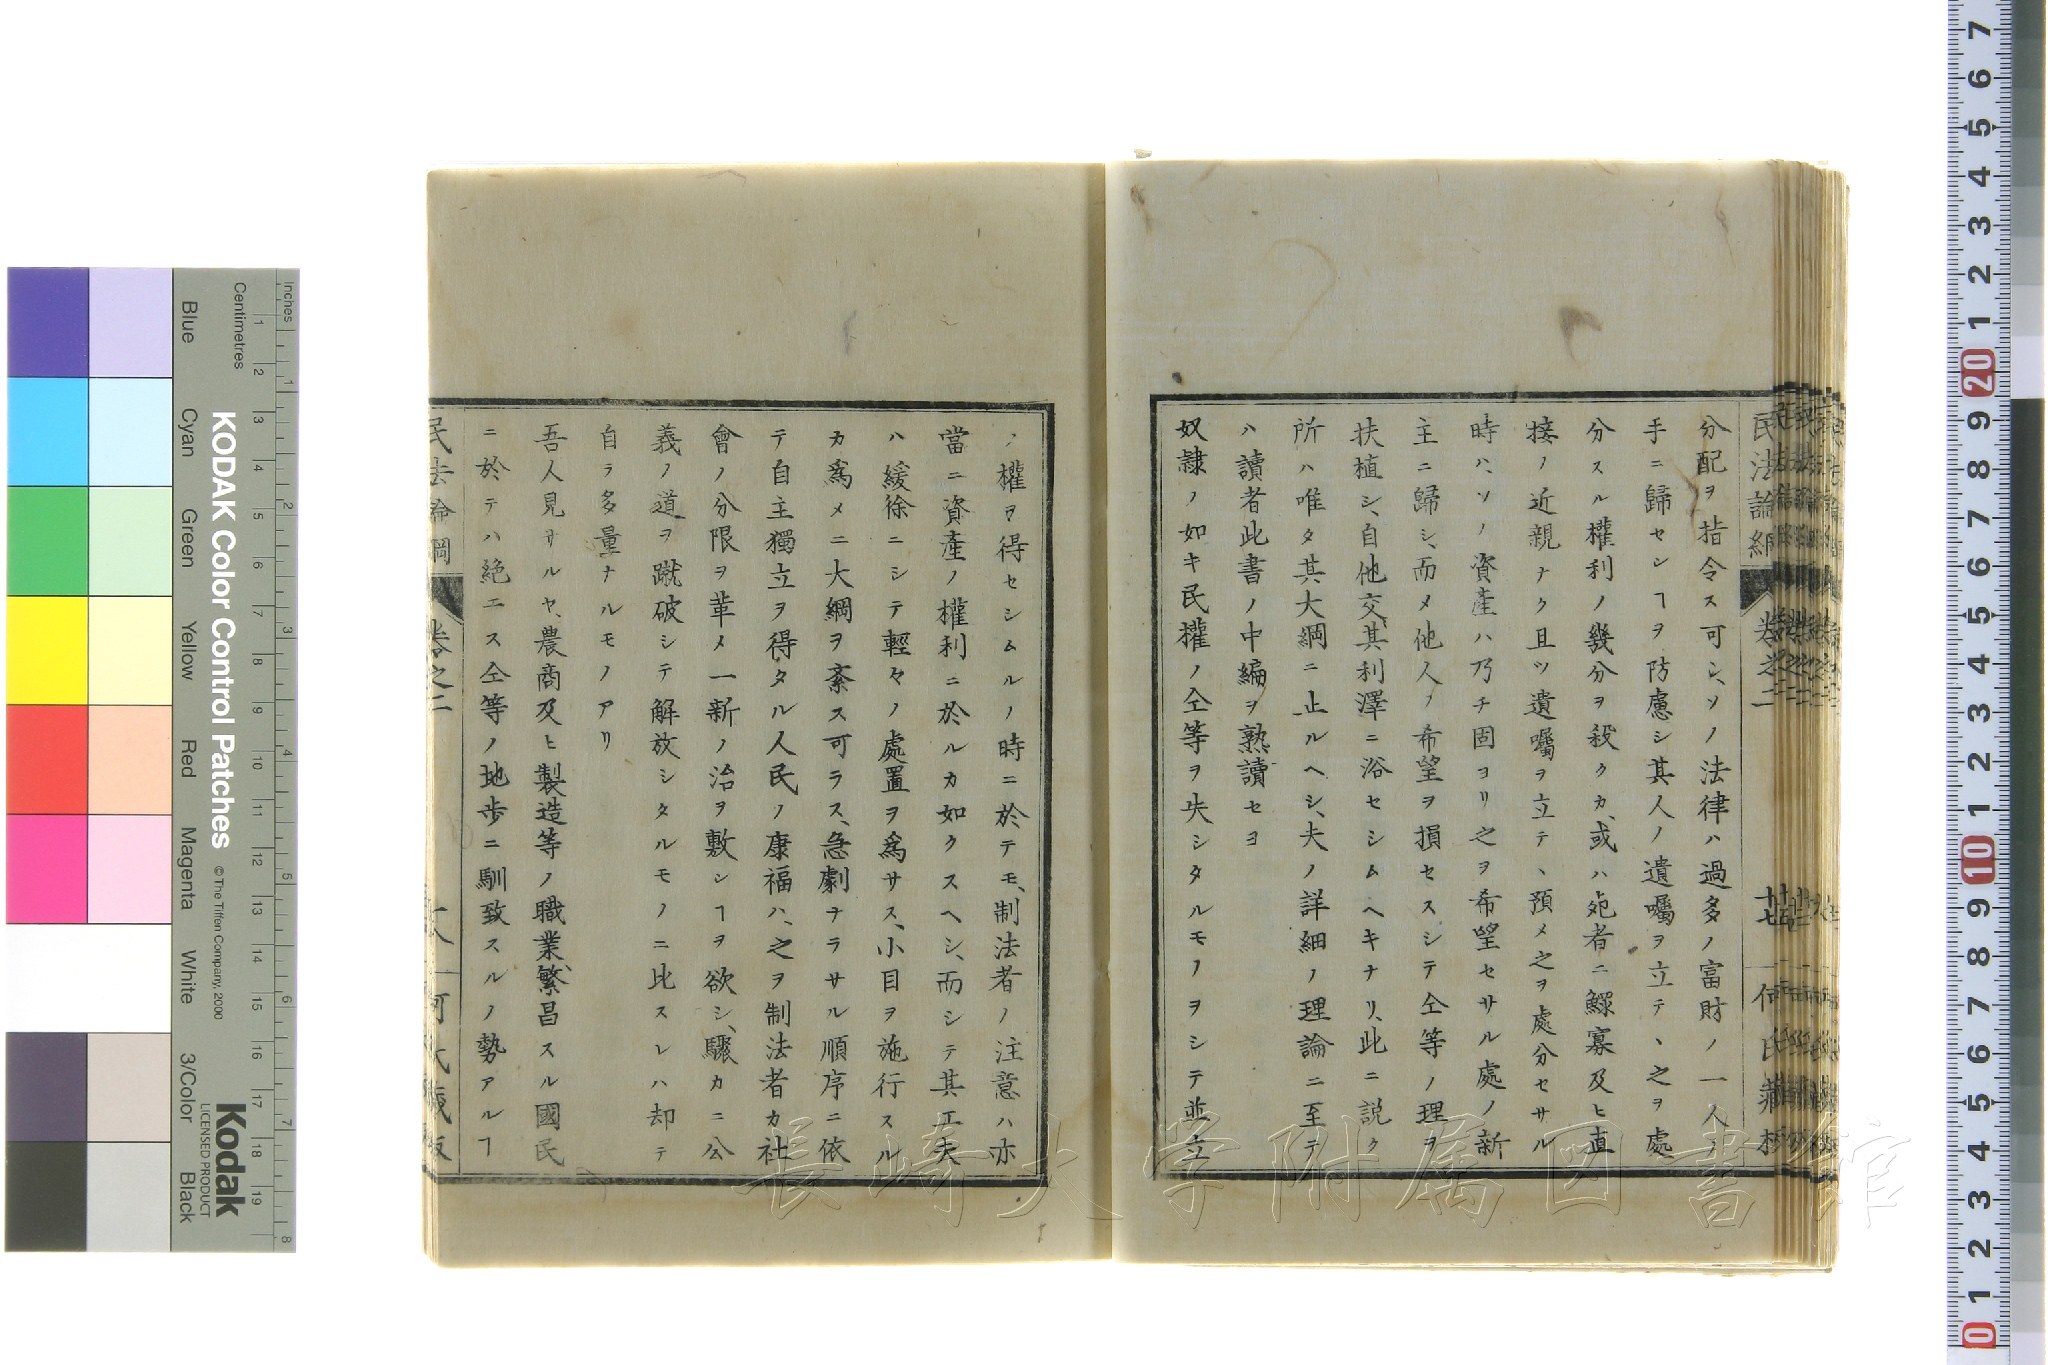 民法論綱
卷之二
十七
何氏藏板
分配ヲ指令ス可シ、ソノ法律ハ過多ノ富財ノ一人ノ
手ニ歸センヿヲ防慮シ其人ノ遺囑ヲ立テヽ之ヲ處
分スル權利ノ幾分ヲ殺クカ、或ハ死者ニ鰥寡及ヒ直
接ノ近親ナク且ツ遺囑ヲ立テヽ預メ之ヲ處分セサル
時ハ、ソノ資產ハ乃チ固ヨリ之ヲ希望セサル處ノ新
主ニ歸シ、而メ他人ノ希望ヲ損セスシテ仝等ノ理ヲ
扶植シ、自他交、其利澤ニ浴セシムヘキナリ、此ニ説ク
所ハ唯タ其大綱ニ止ルヘシ、夫ノ詳細ノ理論ニ至テ
ハ讀者此書ノ中編ヲ熟讀セヨ
奴隷ノ如キ民權ノ仝等ヲ失シタルモノヲシテ並立
ノ權ヲ得セシムルノ時ニ於テモ、制法者ノ注意ハ亦
當ニ資產ノ權利ニ於ルカ如クスヘシ、而シテ其工夫
ハ緩徐ニシテ輕々ノ處置ヲ爲サス、小目ヲ施行スル
カ爲メニ大綱ヲ紊ス可ラス、急劇ナラサル順序ニ依
テ自主獨立ヲ得タル人民ノ康福ハ、之ヲ制法者カ社
會ノ分限ヲ革メ一新ノ治ヲ敷シヿヲ欲シ、驟カニ公
義ノ道ヲ蹴破シテ解放シタルモノニ比スレハ却テ
自ラ多量ナルモノアリ
吾人見サルヤ、農商及ヒ製造等ノ職業繁昌スル國民
ニ於テハ絶エス仝等ノ地歩ニ馴致スルノ勢アルヿ
民法論綱
卷之二
何氏藏板
KODAK Color Control Patches
© The Tiffen Company, 2000
Kodak
LICENSED PRODUCT
Inches
Centimetres
Blue
Cyan
Green
Yellow
Red
Magenta
White
3/Color
Black
長崎大学附属図書館